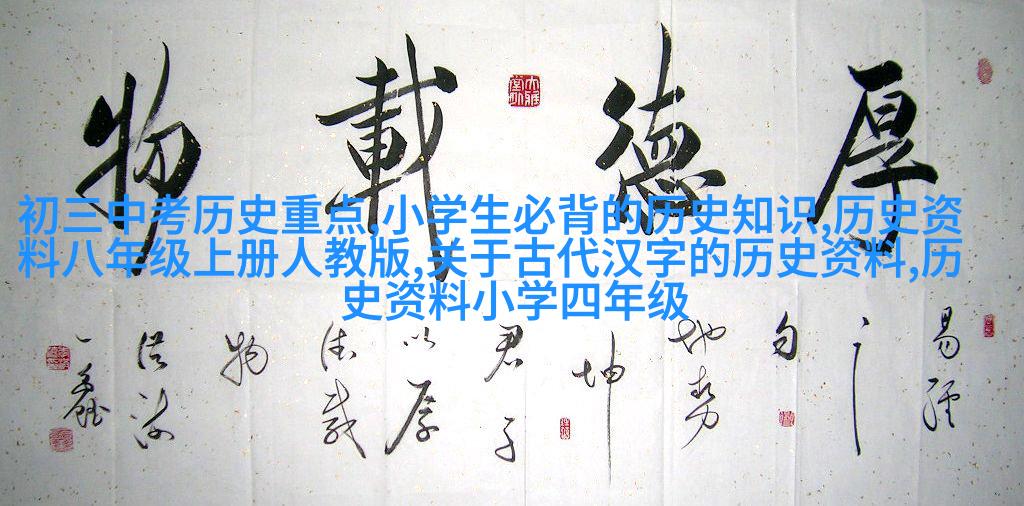 厚德載物
初三中考历史重点,小学生必背的历史知识,历史资
料八年级上册人教版,关于古代汉字的历史资料,历
史资料小学四年级
易经
之
句
地势
坤
君子
以厚
德载
物
一鑫